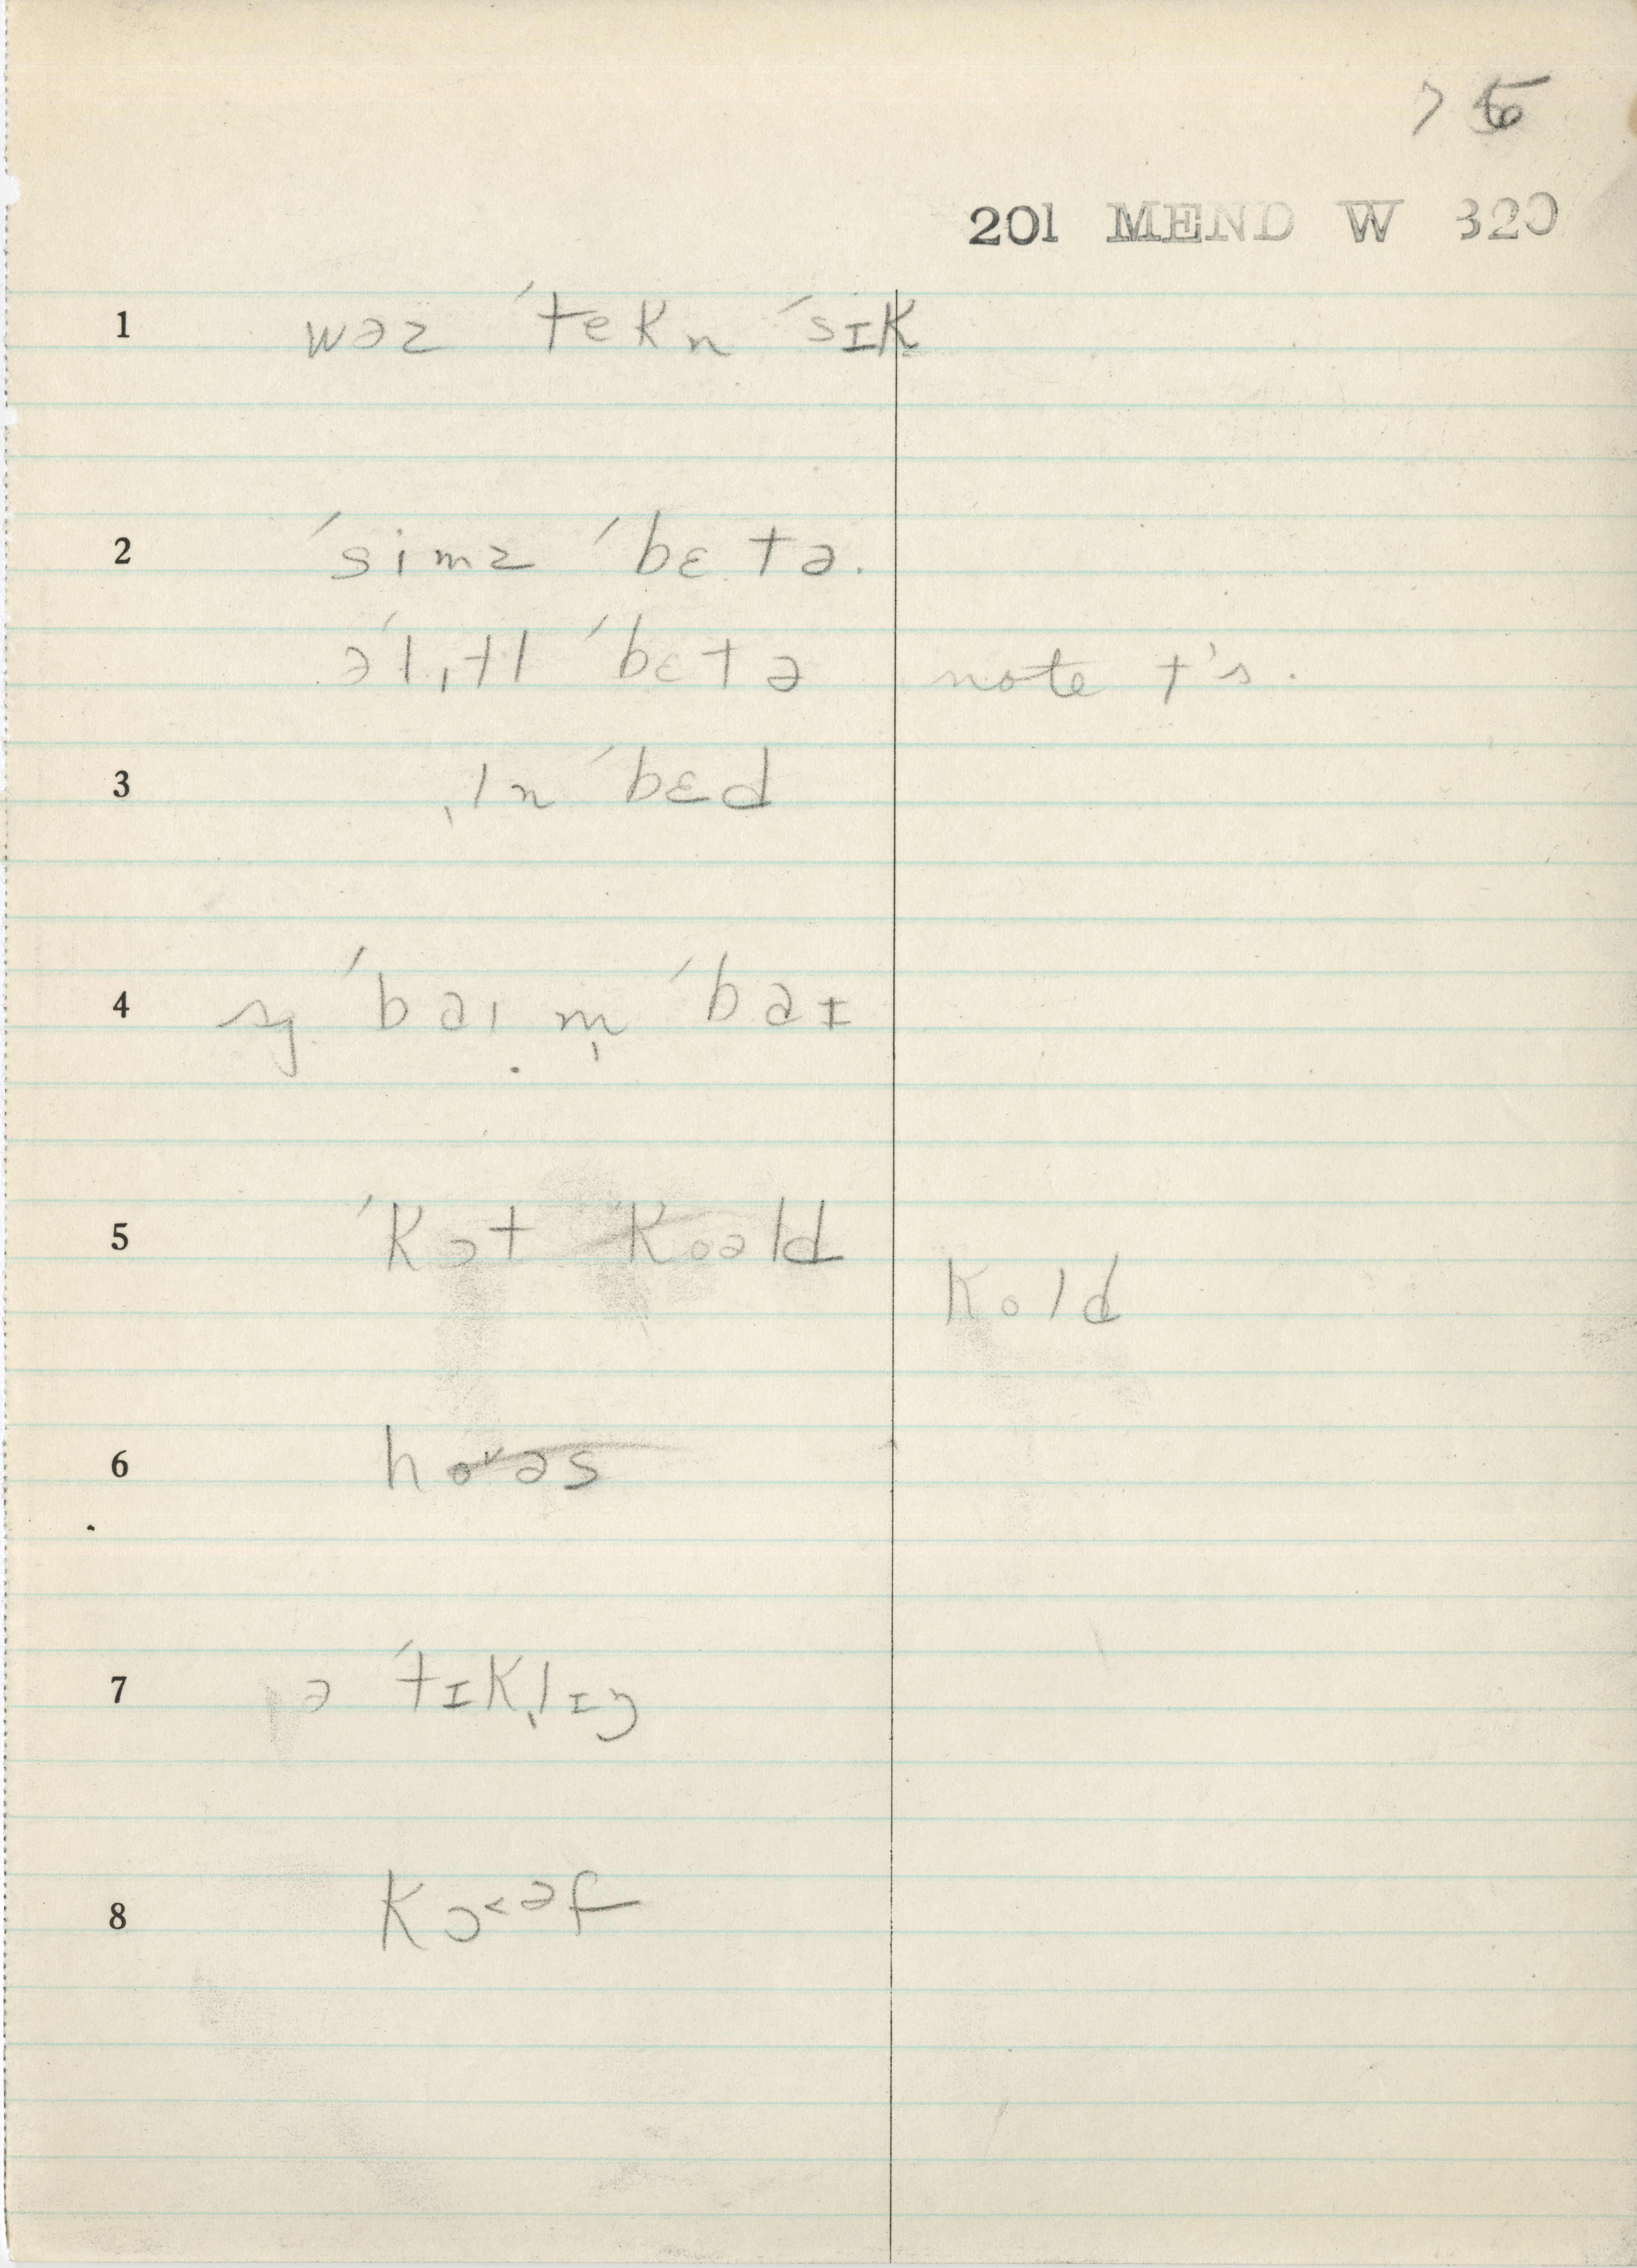 75
201 MEND W 320
1 wəz ˈtekn ˈsɪk
2 ˈsimz ˈbɛtə.
əˈlˌɪtl ˈbɛtə note t's.
3 ˌɪn ˈbɛd
4 sg ˈbaɪ m̩ ˈbaɪ
5 ˈkɔt ˈkoəld
kold
6 ho˅əs
7 ə ˈtɪkl̩ɪŋ
8 kɔ˂əf